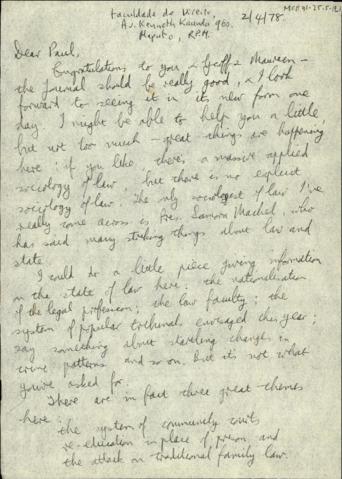 Faculdade de Direito,
Av. Kenneth Kaunda, 960.
Maputo, R.P.M.
2/4/78.
Dear Paul,
Congratulations to you & Geoff & Maureen –
the Journal should be really good, & I look
forward to seeing it in its new form one
day. I might be able to help you a little,
but not too much – great things are happening
here; if you like, there's a massive applied
sociology of law but there is no explicit
sociology of law. The only sociologist of law I've
really come across is Pres. Samora Machel, who
has said many striking things about law and
state.
I could do a little piece giving information
on the state of law here: the nationalisation
of the legal profession; the law faculty; the
system of popular tribunals envisaged this year;
say something about startling changes in
crime patterns and so on. But it's not what
you've asked for.
There are in fact three great themes
here: the system of community courts
re-education in place of prison, and
the attack on traditional family law.